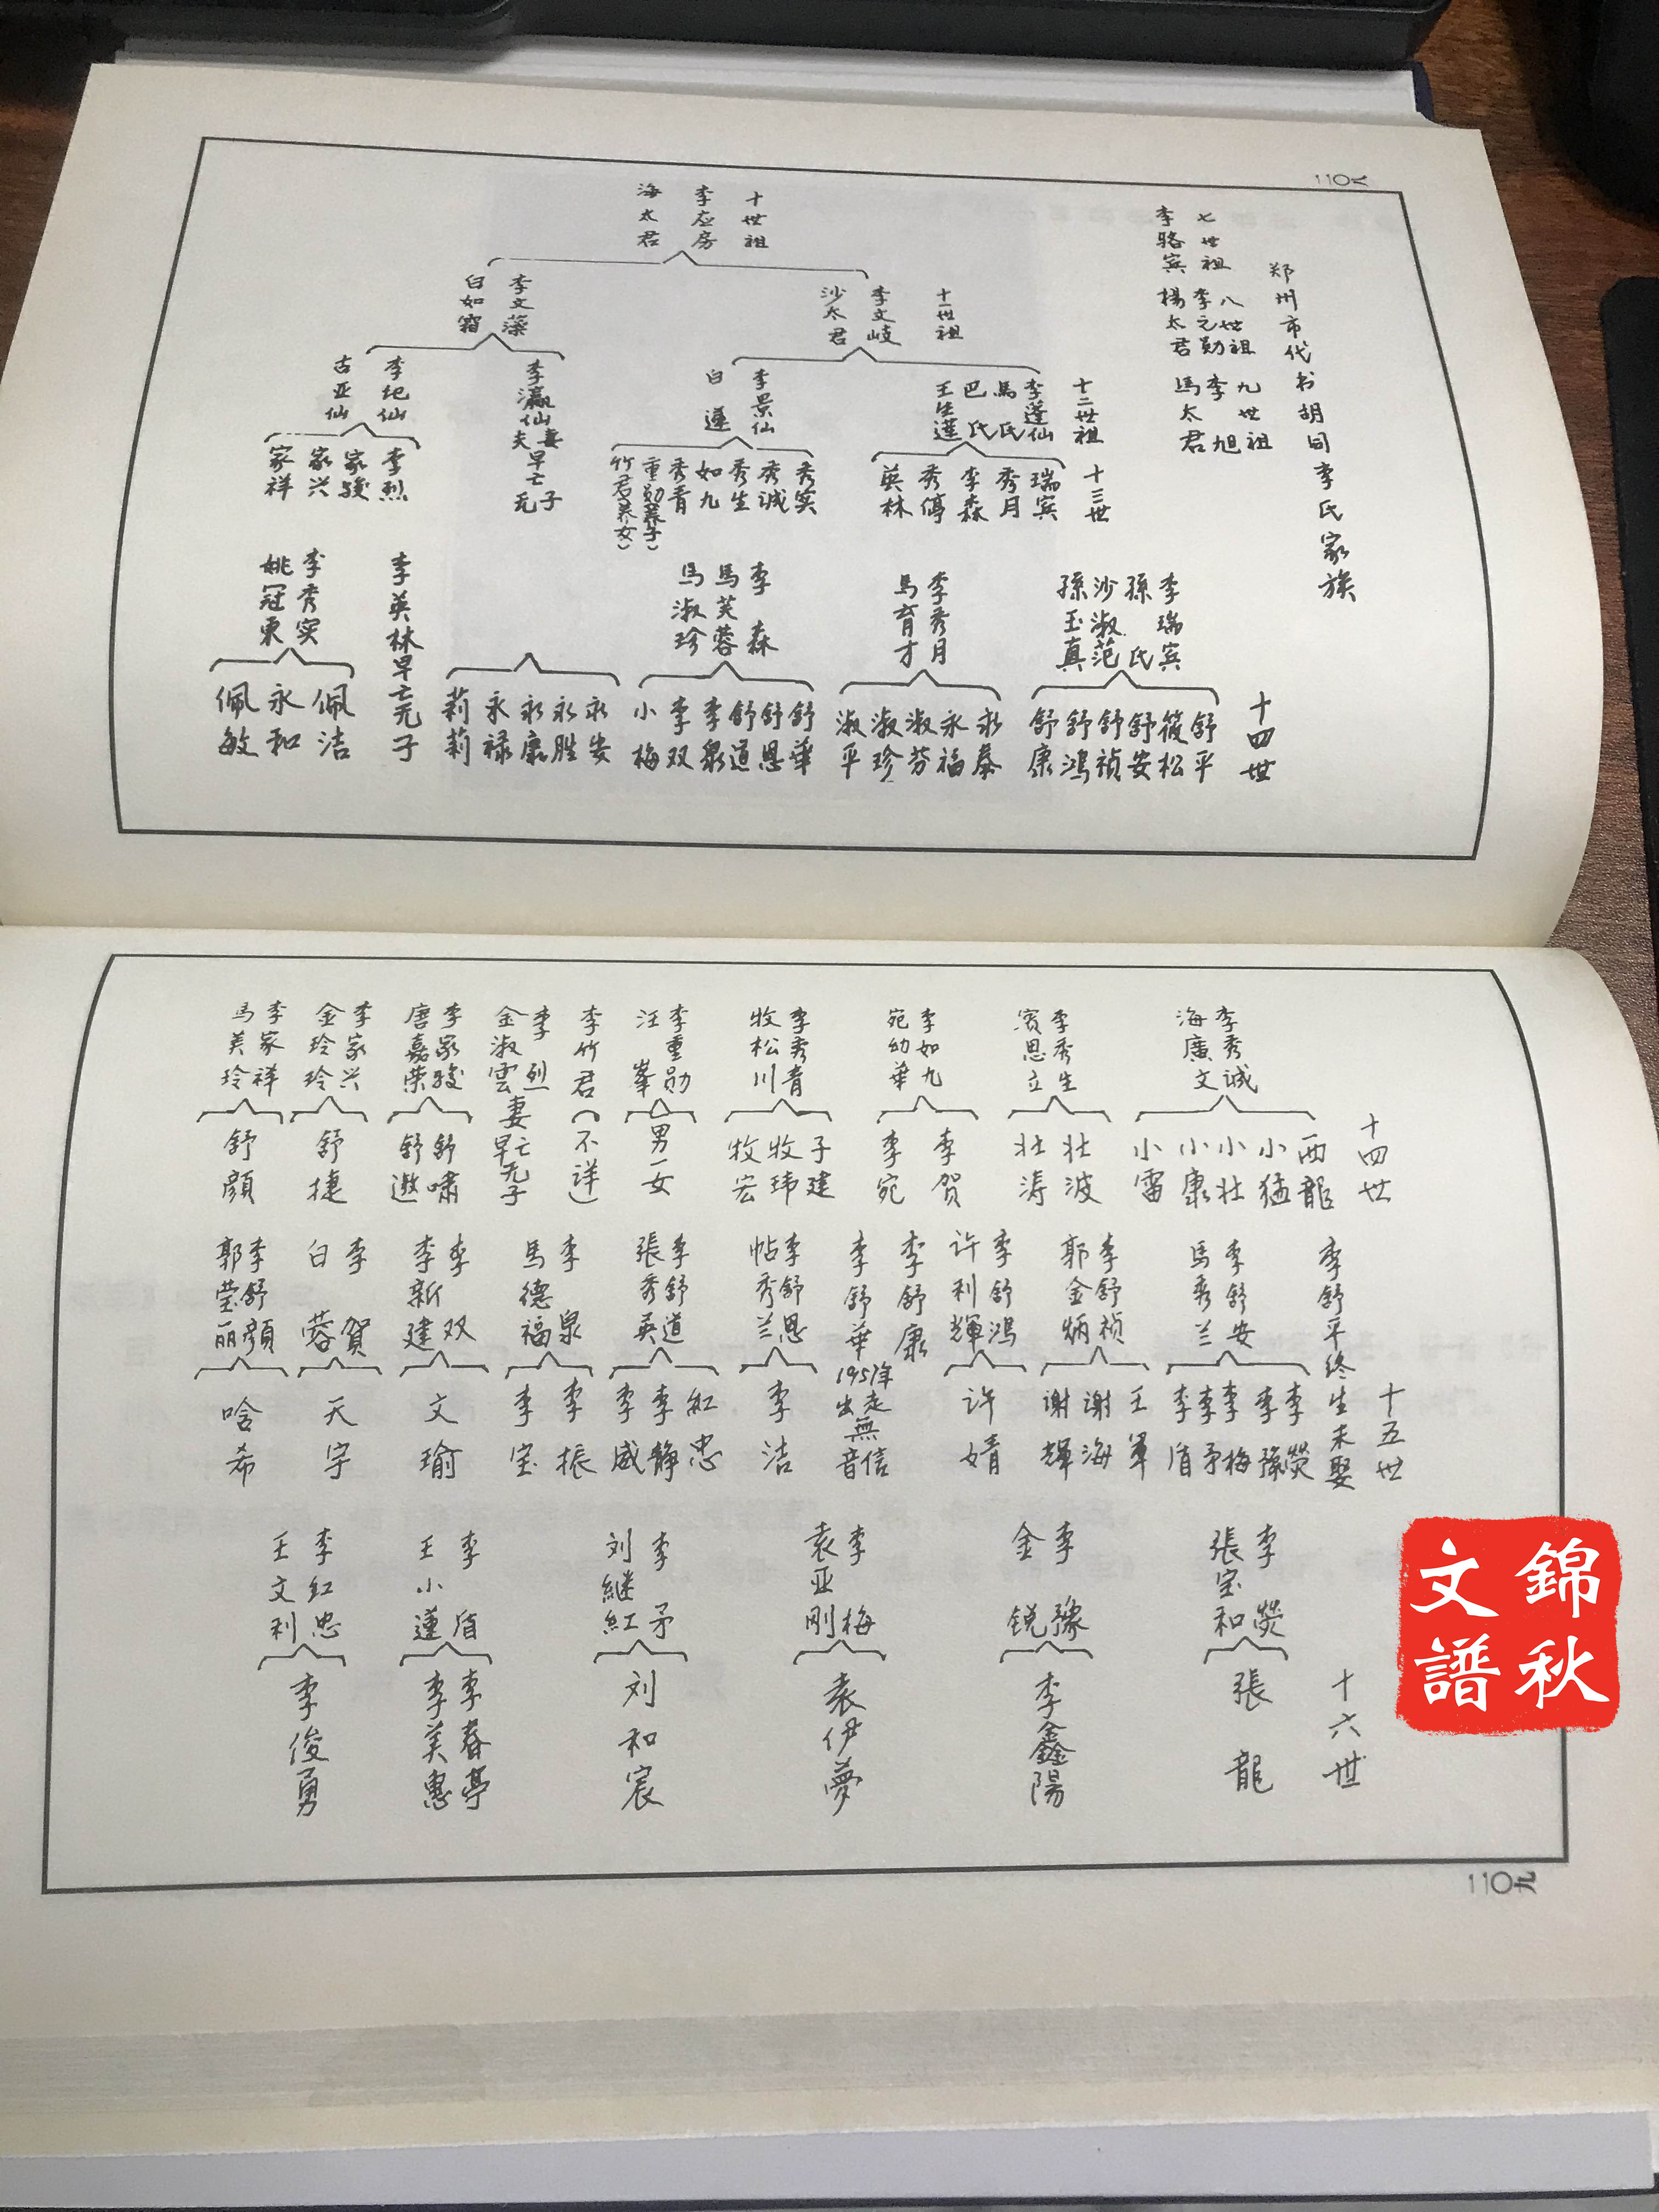 郑州市代书胡同李氏家族
七世祖
李骆宾
八世祖
李元勋
楊太君
九世祖
李旭
馬太君
十世祖
李应房
海太君
十一世祖
李文岐
沙太君
李文藻
白如霜
十二世祖
李蓬仙
馬氏
巴氏
王生蓮
李景仙
白蓮
李瀛仙
夫妻早亡
无子
李纪仙
古亚仙
十三世
瑞宾
秀月
李森
秀停
英林
秀实
秀诚
秀生
如九
秀青
重勋(养子)
竹君(养女)
李烈
家骏
家兴
家祥
李瑞宾
孫氏
沙淑范
孫玉真
李秀月
馬育才
李森
馬芙蓉
馬淑珍
李英林早亡无子
李秀实
姚冠東
十四世
舒平
筱松
舒安
舒祯
舒鸿
舒康
永泰
永福
淑芬
淑珍
淑平
舒華
舒恩
舒道
李泉
李双
小梅
永安
永胜
永康
永禄
莉莉
佩洁
永和
佩敏
110八
李秀诚
海廣文
李秀生
賓思立
李如九
宛幼華
李秀青
牧松川
李重勋
汪峯
李竹君
李烈
金淑雲
妻早亡无子
李家骏
唐嘉荣
李家兴
金玲玲
李家祥
馬美玲
十四世
西龍
小猛
小壮
小康
小雷
壮波
壮涛
李贺
李宛
子建
牧玮
牧宏
男一女
不详
舒嘯
舒遨
舒捷
舒顔
李舒平终生未娶
李舒安
馬秀兰
李舒祯
郭金炳
李舒鸿
许利輝
李舒康
李舒華
1957年
出走無
音信
李舒恩
帖秀兰
李舒道
張秀英
李泉
馬德福
李双
李新建
李賀
白蓉
李舒顔
郭莹丽
十五世
李熒
李豫
李梅
李矛
李盾
王軍
谢海
谢輝
许婧
李洁
紅忠
李静
李威
李振
李宝
文瑜
天宇
晗希
李熒
張宝和
李豫
金锐
李梅
袁亚刚
李矛
刘继紅
李盾
王小蓮
李红忠
王文利
十六世
張龍
李鑫陽
袁伊夢
刘和宸
李春亭
李美惠
李俊勇
110九
錦秋
文譜